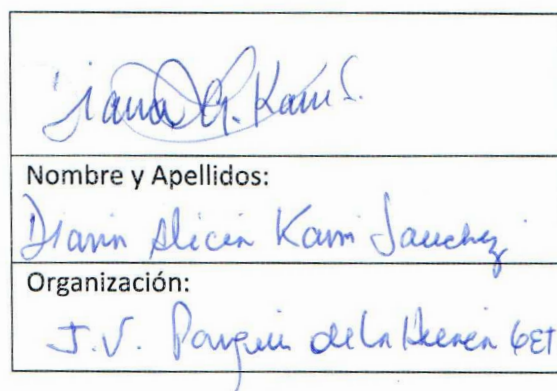 Diana A. Kam S.
Nombre y Apellidos:
Diana Alicia Kam Sanchez
Organización:
J.V. de la